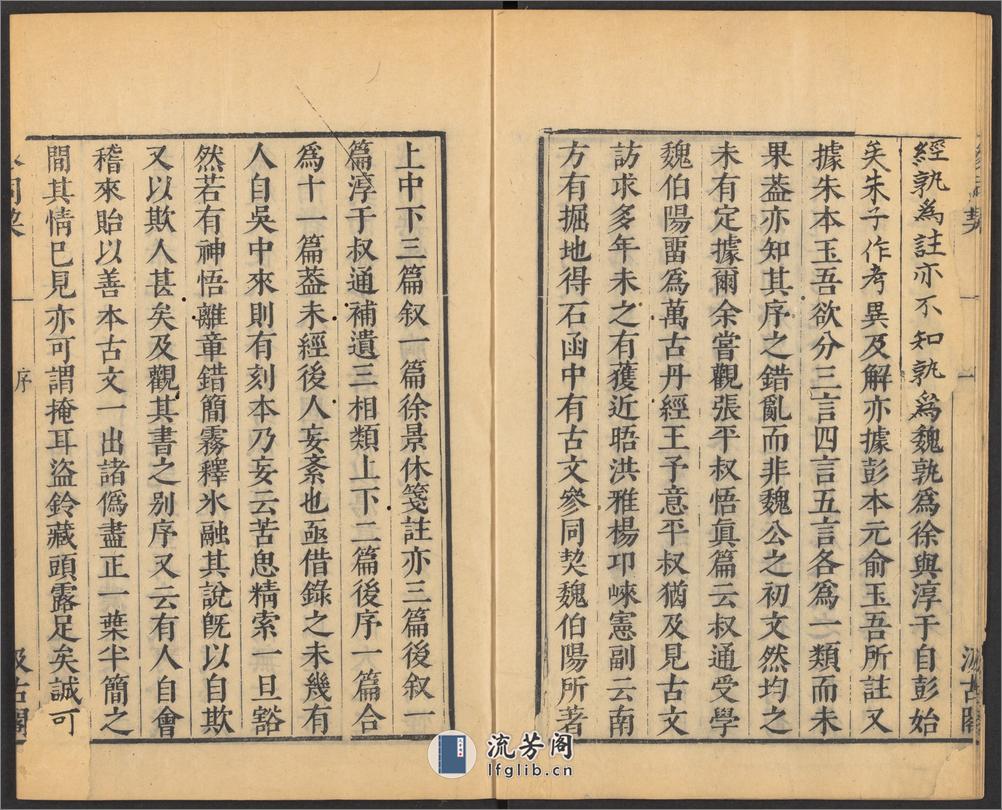 經孰為註亦不知孰為魏孰為徐與淳于自彭始
矣朱子作考異及解亦據彭本元俞玉吾所註又
據朱本玉吾欲分三言四言五言各為一類而未
果葢亦知其序之錯亂而非魏公之初文然均之
未有定據爾余嘗觀張平叔悟眞篇云叔通受學
魏伯陽畱為萬古丹經王予意平叔猶及見古文
訪求多年未之有獲近晤洪雅楊卭崍憲副云南
方有掘地得石函中有古文參同契魏伯陽所著
上中下三篇叙一篇徐景休箋註亦三篇後叙一
篇淳于叔通補遺三相類上下二篇後序一篇合
為十一篇葢未經後人妄紊也亟借錄之未幾有
人自吳中來則有刻本乃妄云苦思精索一旦豁
然若有神悟離章錯簡霧釋氷融其說旣以自欺
又以欺人甚矣及觀其書之別序又云有人自會
稽來貽以善本古文一出諸僞盡正一葉半簡之
間其情已見亦可謂掩耳盜鈴藏頭露足矣誠可
同契
一
序
汲古閣
流芳阁
lfglib.cn